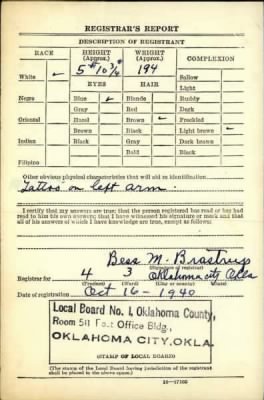 REGISTRAR'S REPORT
DESCRIPTION OF REGISTRANT
RACE HEIGHT (Approx.) WEIGHT (Approx.) COMPLEXION
White ✓ 5" 10 3/4" 194 Sallow
EYES HAIR Light
Negro Blue ✓ Blonde Ruddy
Gray Red Dark
Oriental Hazel Brown ✓ Freckled
Brown Black Light brown ✓
Indian Black Gray Dark brown
Bald Black
Filipino
Other obvious physical characteristics that will aid in identification
Tattoo on left arm.
I certify that my answers are true; that the person registered has read or has had
read to him his own answers; that I have witnessed his signature or mark and that
all of his answers of which I have knowledge are true, except as follows:
Bess M. Brastrup
(Signature of registrar)
Registrar for 4 3 Oklahoma City Okla
(Precinct) (Ward) (City or county) (State)
Date of registration Oct 16 - 1940
Local Board No. 1, Oklahoma County,
Room 511 Post Office Bldg.,
OKLAHOMA CITY, OKLA.
(STAMP OF LOCAL BOARD)
(The stamp of the Local Board having jurisdiction of the registrant
shall be placed in the above space.)